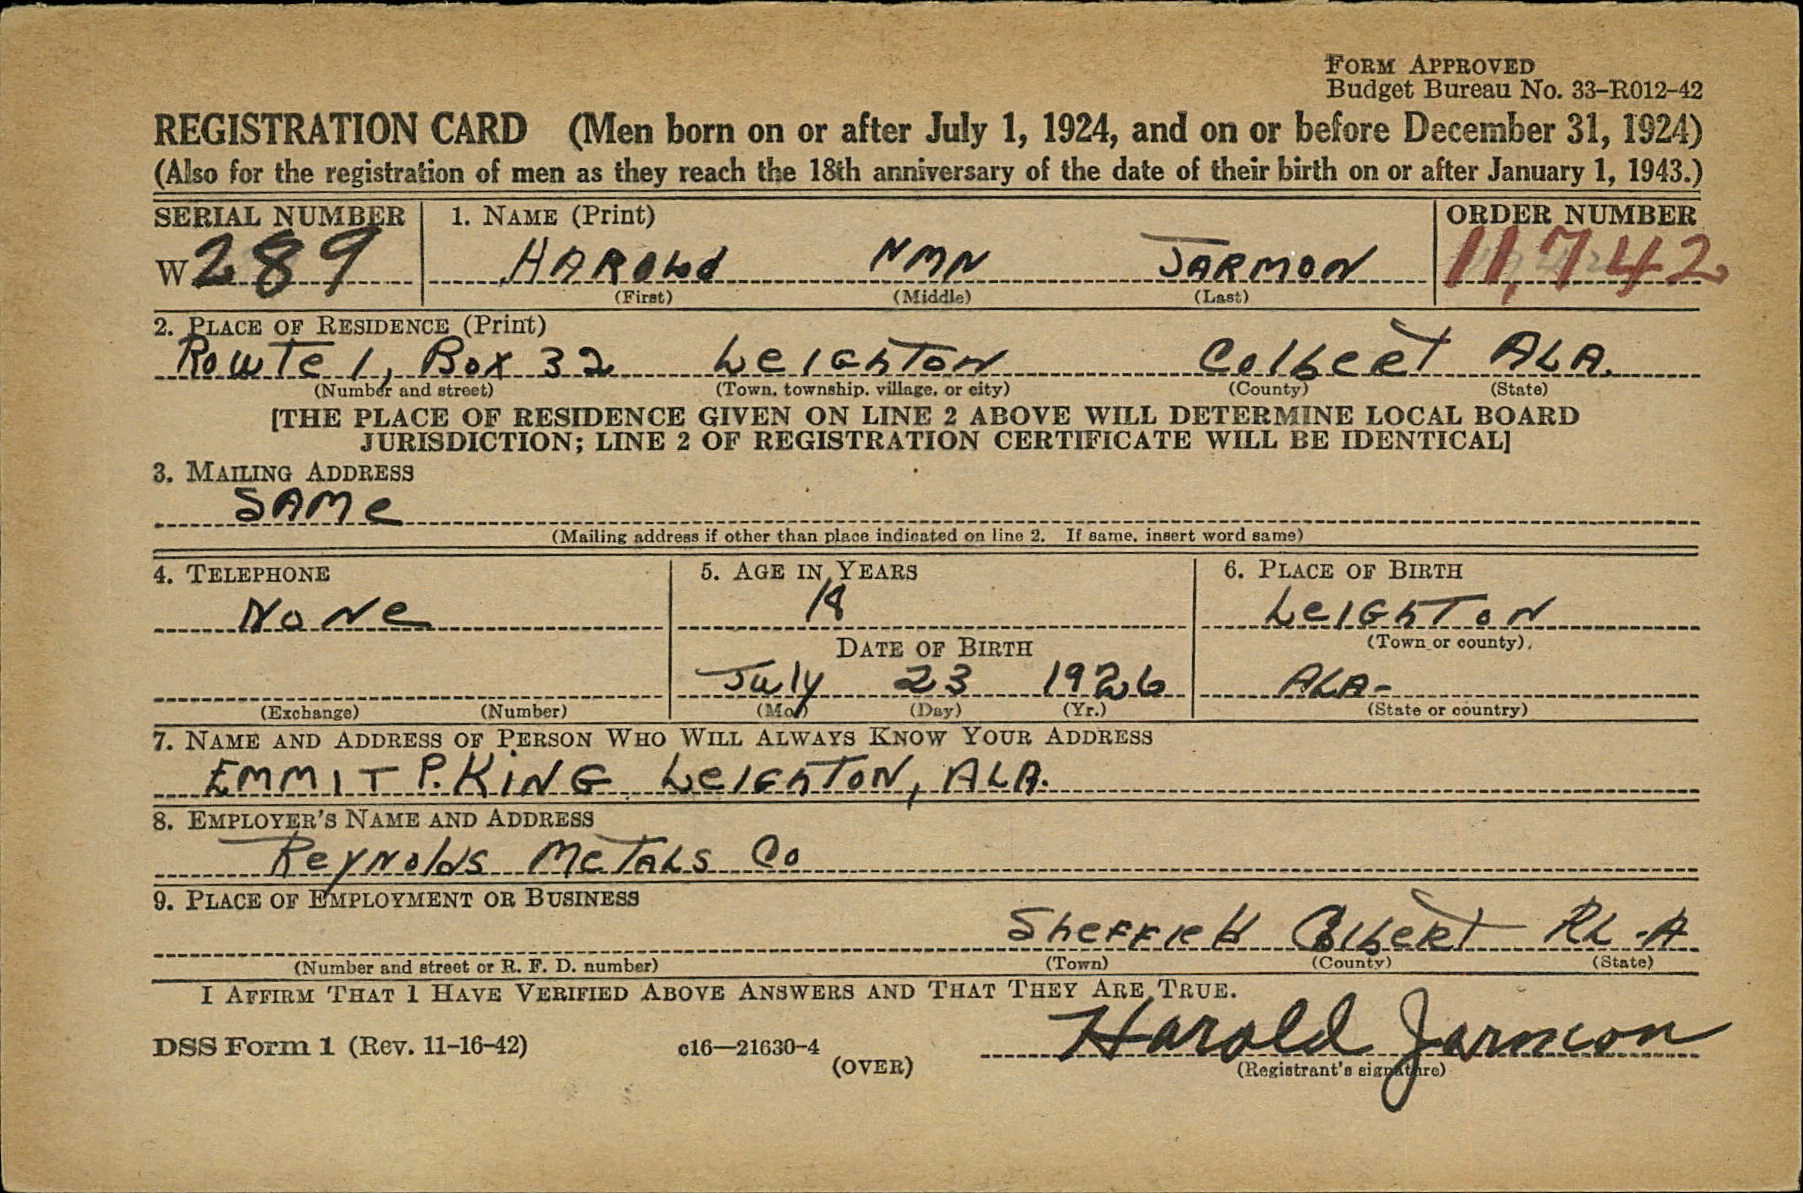 FORM APPROVED
Budget Bureau No. 33-R012-42
REGISTRATION CARD (Men born on or after July 1, 1924, and on or before December 31, 1924)
(Also for the registration of men as they reach the 18th anniversary of the date of their birth on or after January 1, 1943.)
SERIAL NUMBER 1. NAME (Print) ORDER NUMBER
W 289 HAROLd NMN JARMON 11,742
(First) (Middle) (Last)
2. PLACE OF RESIDENCE (Print)
Route 1, Box 32 LeighTon Colbert ALA.
(Number and street) (Town, township, village, or city) (County) (State)
[THE PLACE OF RESIDENCE GIVEN ON LINE 2 ABOVE WILL DETERMINE LOCAL BOARD
JURISDICTION; LINE 2 OF REGISTRATION CERTIFICATE WILL BE IDENTICAL]
3. MAILING ADDRESS
SAMe
(Mailing address if other than place indicated on line 2. If same, insert word same)
4. TELEPHONE 5. AGE IN YEARS 6. PLACE OF BIRTH
NoNe 18 LeIGhToN
DATE OF BIRTH (Town or county)
July 23 1926 ALA-
(Exchange) (Number) (Mo.) (Day) (Yr.) (State or country)
7. NAME AND ADDRESS OF PERSON WHO WILL ALWAYS KNOW YOUR ADDRESS
EMMIT P. KiNG LeIGhToN, ALA.
8. EMPLOYER'S NAME AND ADDRESS
ReyNolds MeTALS Co
9. PLACE OF EMPLOYMENT OR BUSINESS
SheFFIeld Colbert AL-A
(Number and street or R. F. D. number) (Town) (County) (State)
I AFFIRM THAT I HAVE VERIFIED ABOVE ANSWERS AND THAT THEY ARE TRUE.
DSS Form 1 (Rev. 11-16-42) c16—21630-4 Harold Jarmon
(OVER) (Registrant's signature)